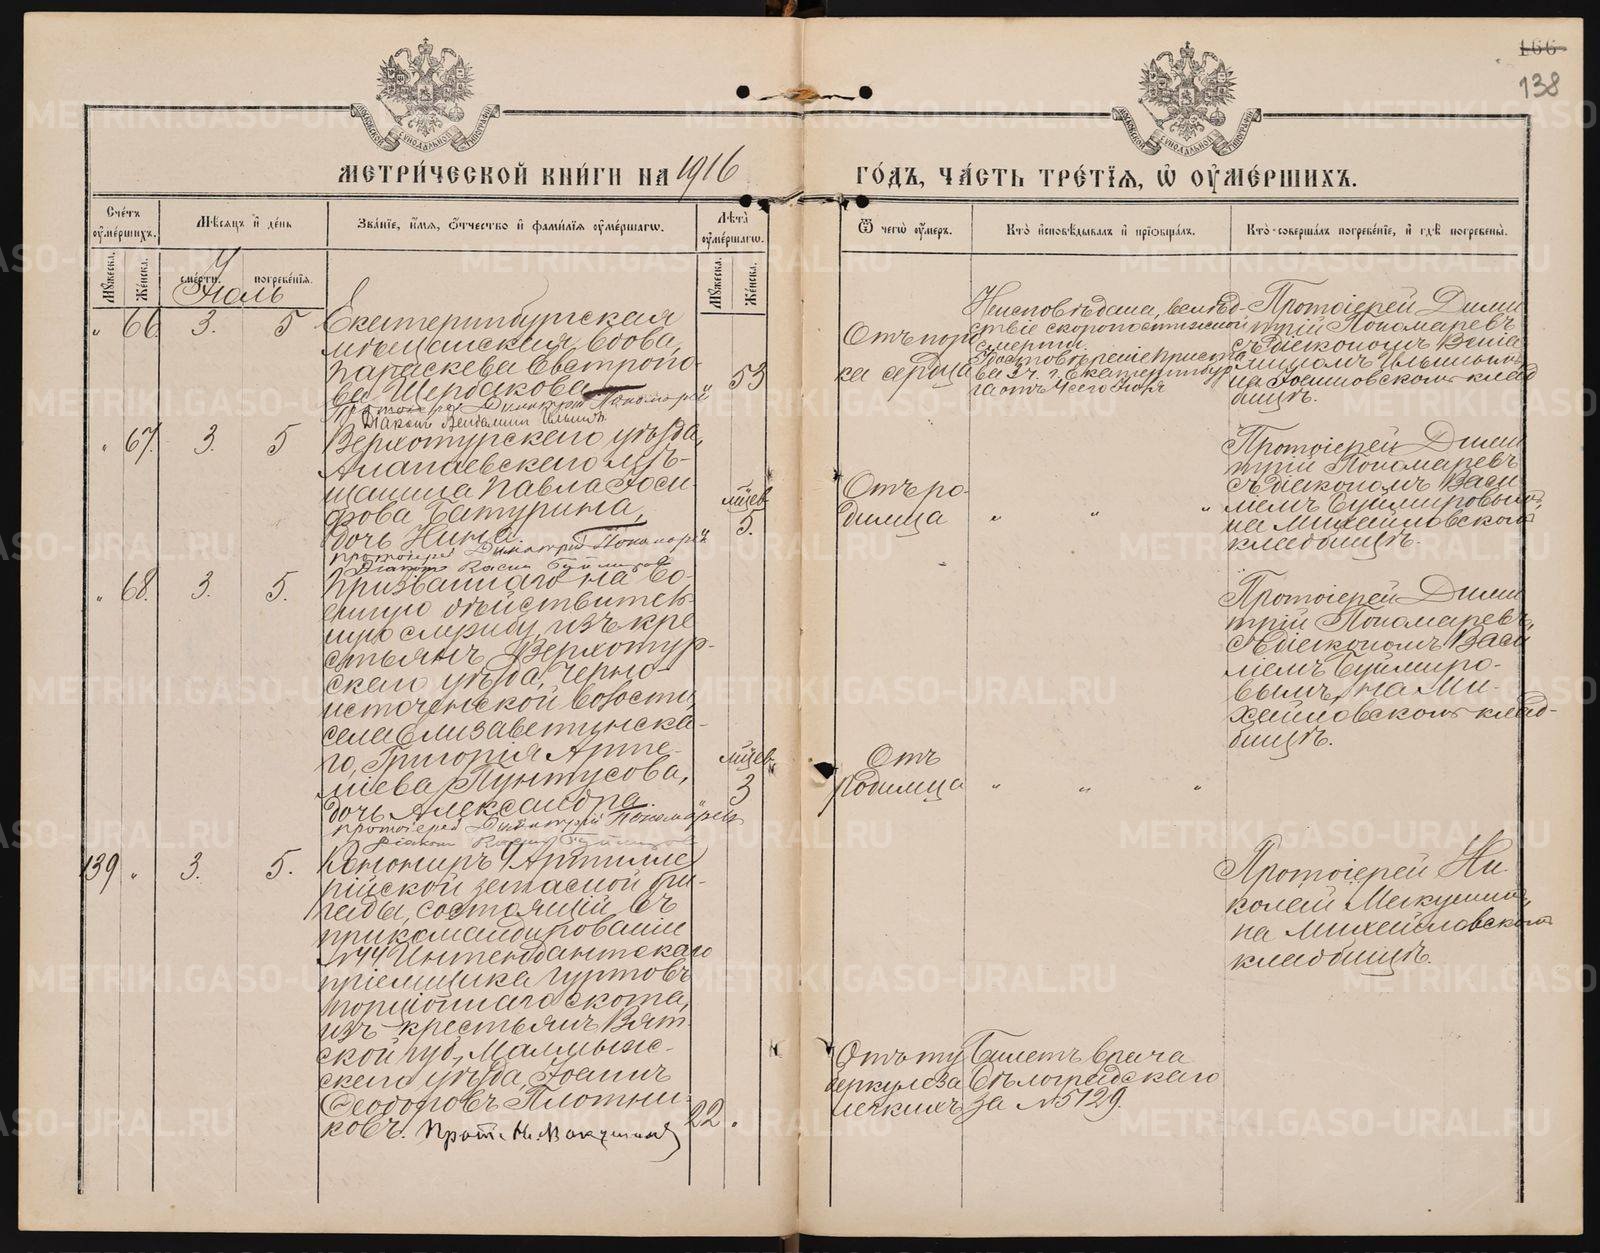 166
138
МЕТРИ́ЧЕСКОЙ КНИ́ГИ НА 1916 ГО́ДЪ, ЧА́СТЬ ТРЕ́ТІѦ, Ѡ ОУМЕ́РШИХЪ.
Сче́тъ оуме́ршихъ.
Мꙋжеска.
Же́нска.
Мѣсяцъ и де́нь
сме́рти.
погребе́нїѧ.
Зва́нїе, и́мѧ, ѻ҆́тчество и фами́лїѧ оуме́ршагѡ.
Лѣта̀ оуме́ршагѡ.
Мꙋжеска.
Же́нска.
Ѿ чегѡ̀ оу́меръ.
Кто̀ и҆сповѣ́дывалъ и҆ прїѡбща́лъ.
Кто̀ соверша́лъ погребе́нїе, и҆ гдѣ̀ погребены̀.
Іюль
" 66. 3. 5
Екатеринбургская
мѣщанская вдова,
Параскева Евстропо-
ва Щербакова
Протоіерей Димитрій Пономарев
Діаконъ Веніаминъ Ильинъ.
53
Отъ поро
ка сердца
Неисповѣдана, вслѣд-
ствіе скоропостижной
смерти.
ва 2 ч. г. Екатеринбур
га отъ 4 сего Іюля
Протоіерей Дими
трій Пономаревъ
съ діакономъ Веніа
миномъ Ильинымъ
на Іоанновскомъ клад
бищѣ.
" 67. 3. 5
Верхотурскаго уѣзда,
Алапаевскаго мѣ-
щанина Павла Іоси-
фова Батурина,
дочь Нина.
протоіерей Димитрій Пономарев
Діаконъ Васил Буймиров
мѣсев.
5.
Отъ ро-
димца
" " "
Протоіерей Дими
трій Пономаревъ
съ діакономъ Васи
ліемъ Буймировымъ,
на Михайловскомъ
кладбищѣ.
" 68. 3. 5.
Призваннаго на во-
енную дѣйствитель-
ную службу, изъ кре
стьянъ Верхотур-
скаго уѣзда, Черно-
источенской волости,
села Елизаветинска-
го, Григорія Арте-
міева Пунтусова,
дочь Александра.
протоіерей Димитрій Пономарев
Діаконъ Васил Буймиров
мѣсев.
3
Отъ
родимца
" " "
Протоіерей Дими
трій Пономаревъ,
съ діакономъ Васи
ліемъ Буймиро-
вымъ, на Ми-
хайловскомъ клад-
бищѣ.
139 " 3. 5.
Канониръ Артилле
рійской запасной бри-
гады, состоящій въ
прикомандированіи
№44 Интендантскаго
пріемщика гуртовъ
порціоннаго скота,
изъ крестьянъ Вят-
ской губ., Малмыж-
скаго уѣзда, Іоаннъ
Ѳеодоровъ Плотни-
ковъ. Прот. Н. Макушинъ
22. "
Отъ ту
беркулеза
легкихъ
Билетъ врача
Бѣлоградскаго
за №5129.
Протоіерей Ни
колай Макушинъ,
на Михайловскомъ
кладбищѣ.
METRIKI.GASO-URAL.RU